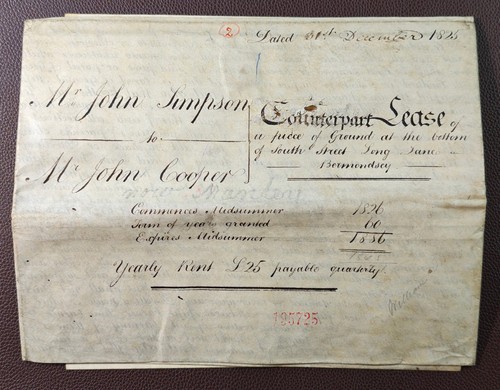 2
Dated 31st December 1825
Mr John Simpson
to
Mr John Cooper
Counterpart Lease of
a piece of Ground at the bottom
of South Street Long Lane
Bermondsey
Commences Midsummer 1826
Term of years granted 60
Expires Midsummer 1886
Yearly Rent £25 payable quarterly
195725